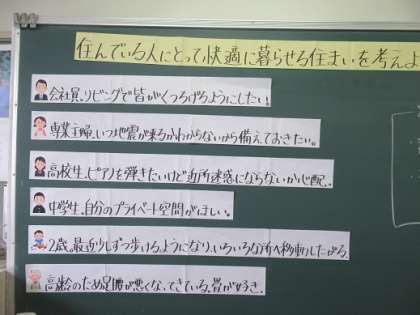 住んでいる人にとって、快適に暮らせる住まいを考えよ
会社員。リビングで皆がくつろげるようにしたい。
専業主婦。いつ地震が来るかわからないから備えておきたい。
高校生。ピアノを弾きたいけど近所迷惑にならないか心配。
中学生。自分のプライベート空間がほしい。
2歳。最近少しずつ歩けるようになり、いろいろな所へ移動したがる。
高齢のため足腰が悪くなってきている。畳が好き。